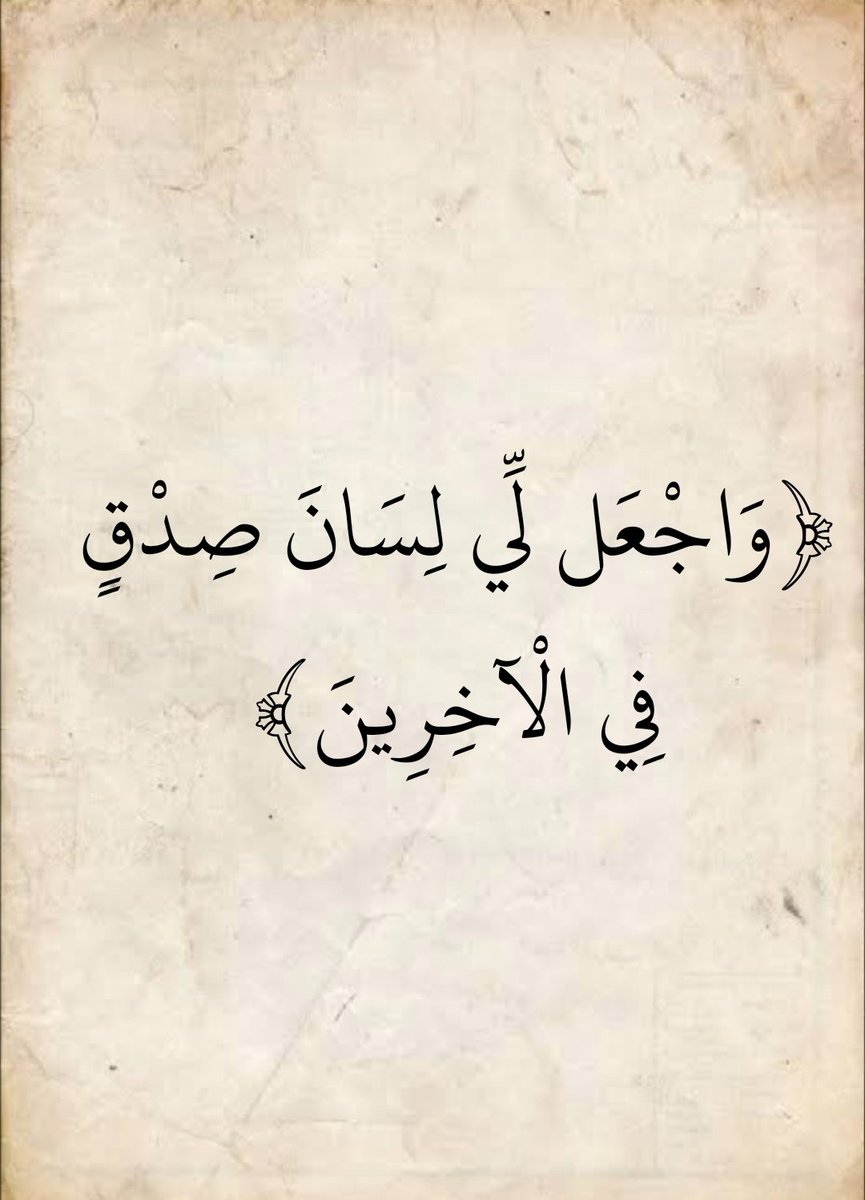 ﴿وَاجْعَل لِّي لِسَانَ صِدْقٍ
فِي الْآخِرِينَ﴾